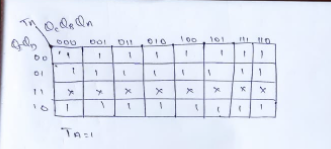 TA QC QB QA
QE QD 000 001 011 010 100 101 111 110
00 1 1 1 1 1 1 1 1
01 1 1 1 1 1 1 1 1
11 x x x x x x x x
10 1 1 1 1 1 1 1 1
TA=1